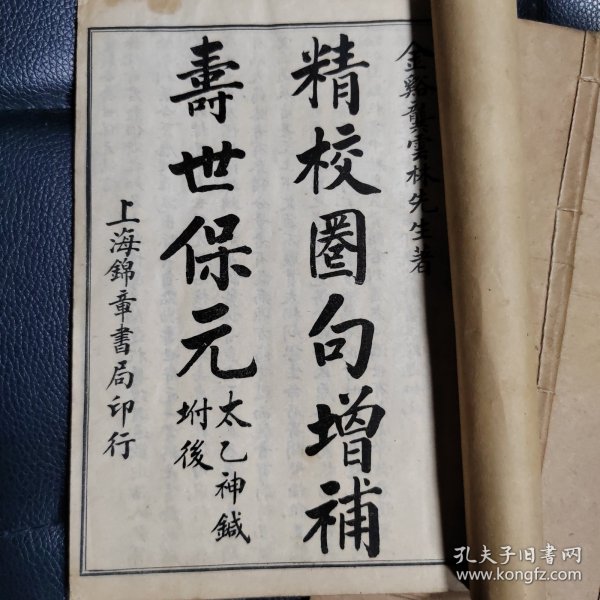 金谿龔雲林先生著
精校圈句增補
壽世保元
太乙神鍼
坿後
上海錦章書局印行
孔夫子旧书网
www.kongfz.com